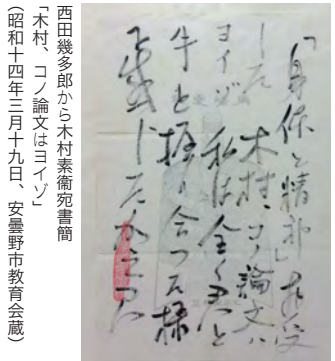 「身体と精神」拝受
した 木村、コノ論文ハ
ヨイゾ 私は全く君と
手を握り合つた様
に感じた
西田幾多郎から木村素衞宛書簡
「木村、コノ論文はヨイゾ」
（昭和十四年三月十九日、安曇野市教育会蔵）